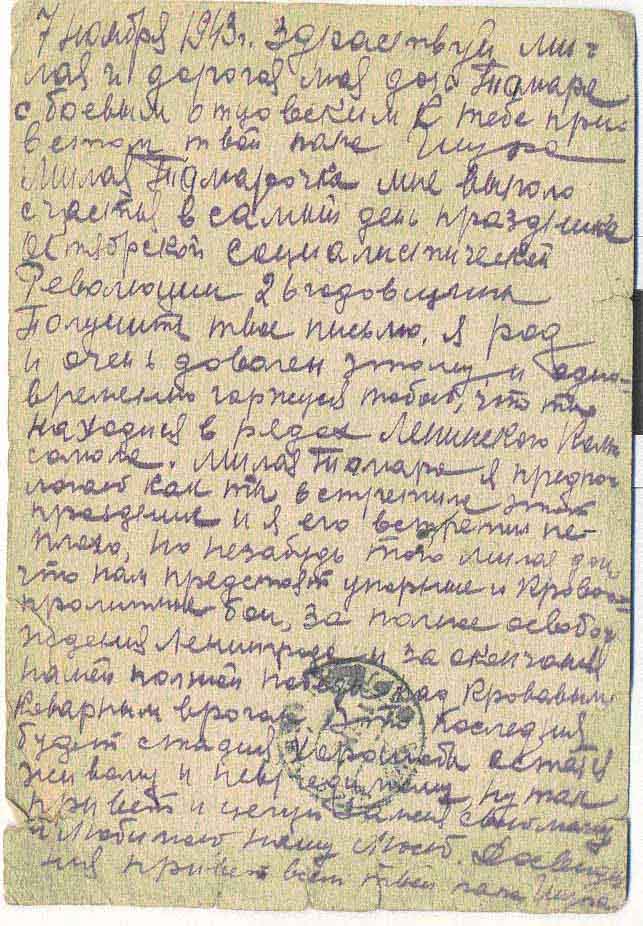 7 ноября 1943г. Здраствуй ми-
лая и дорогая моя доч Тамара
с боевым отцовским к тебе при-
ветом твой папа Шура
Милая Тамарочка мне выпало
счастья в самый день праздника
Октябрской социалистической
Революции 26 годовщины
Получить твое письмо. Я рад
и очень доволен этому и одно-
временно горжуся тобой, что ты
находися в рядах Ленинского Ком
сомола. Милая Тамара я предпо
логаю как ты встретила этот
праздник и я его встретил не-
плохо, но незабудь того милая доч
что нам предстоят упорные и Крово-
пролитные бои, за полное освобож
ждения Ленинграда и за окончания
нашей полной победы над Кровавым
Коварным врагом. Это последния
будет стадия хорошобы остатся
живому и невредимому, ну так
привет и целуй за меня свою маму
и Любимою нашу Люсю. Досвида
ния привет всем твой папа Шура.